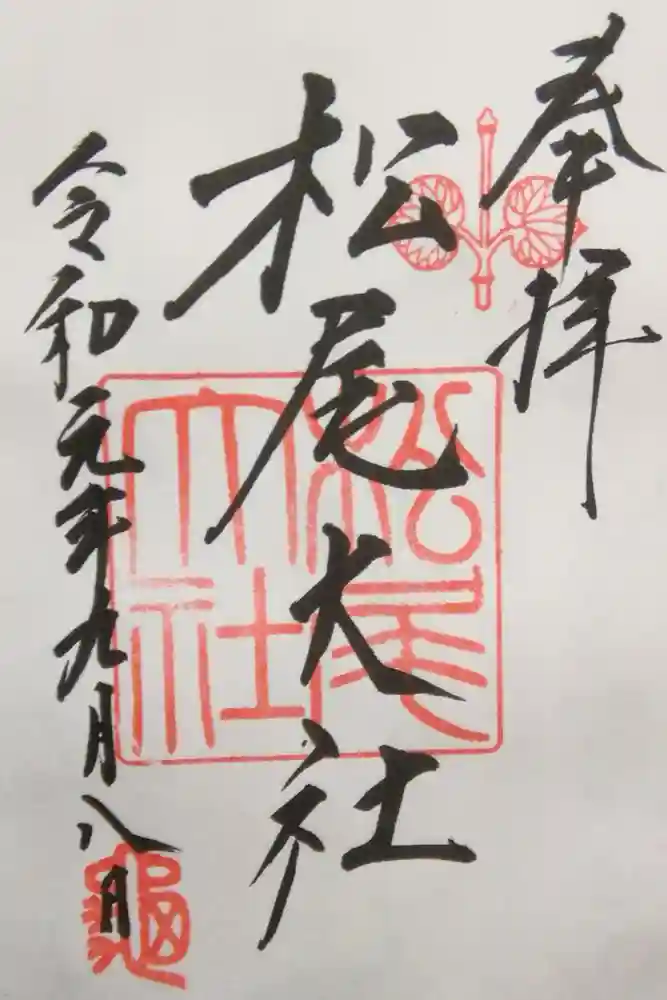 奉拝
松尾大社
松尾
大社
令和元年九月八日
龜